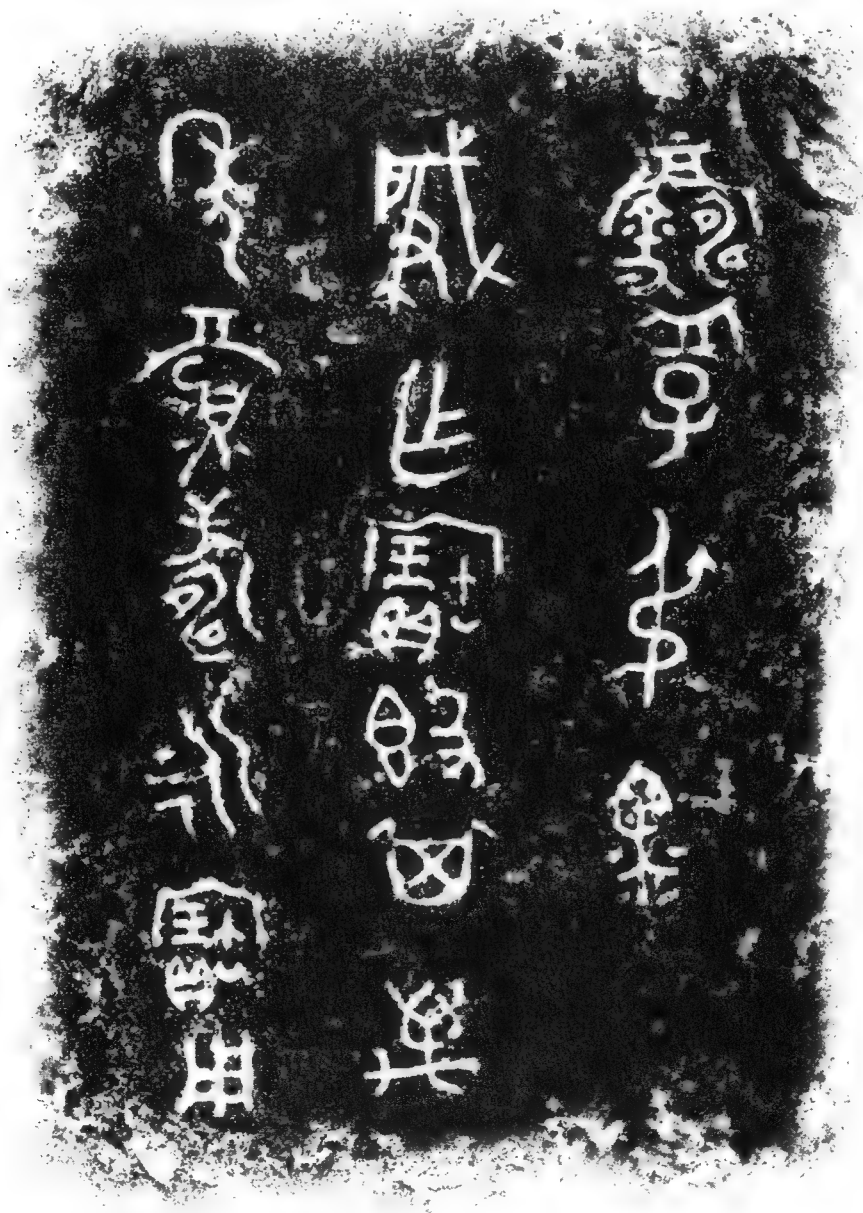 鑄子叔黑臣
肇乍寶簋其萬
年眉壽永寶用